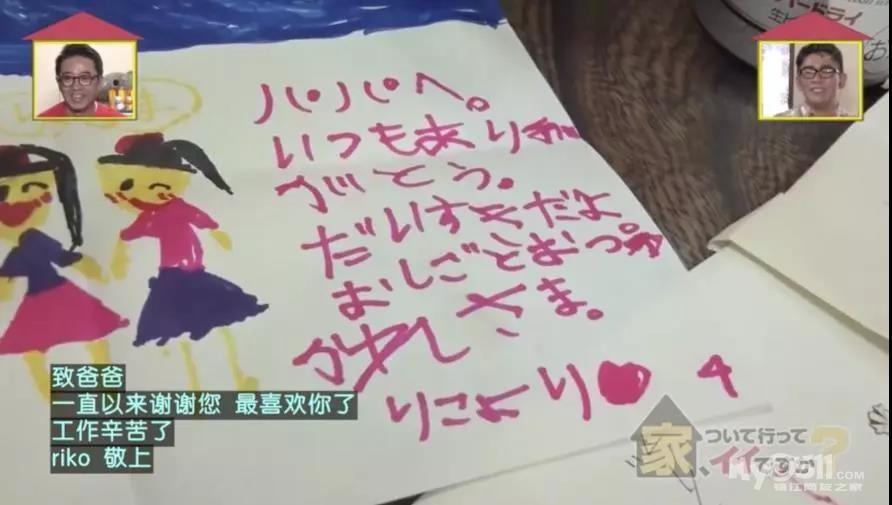 パパへ。
いつもあり
がとう。
だいすきだよ
おしごとおつ
かれさま。
りこより♥
致爸爸
一直以来谢谢您 最喜欢你了
工作辛苦了
riko 敬上
家、ついて行って
イイですか?
my0511.COM
镇江网友之家
ドライ
生